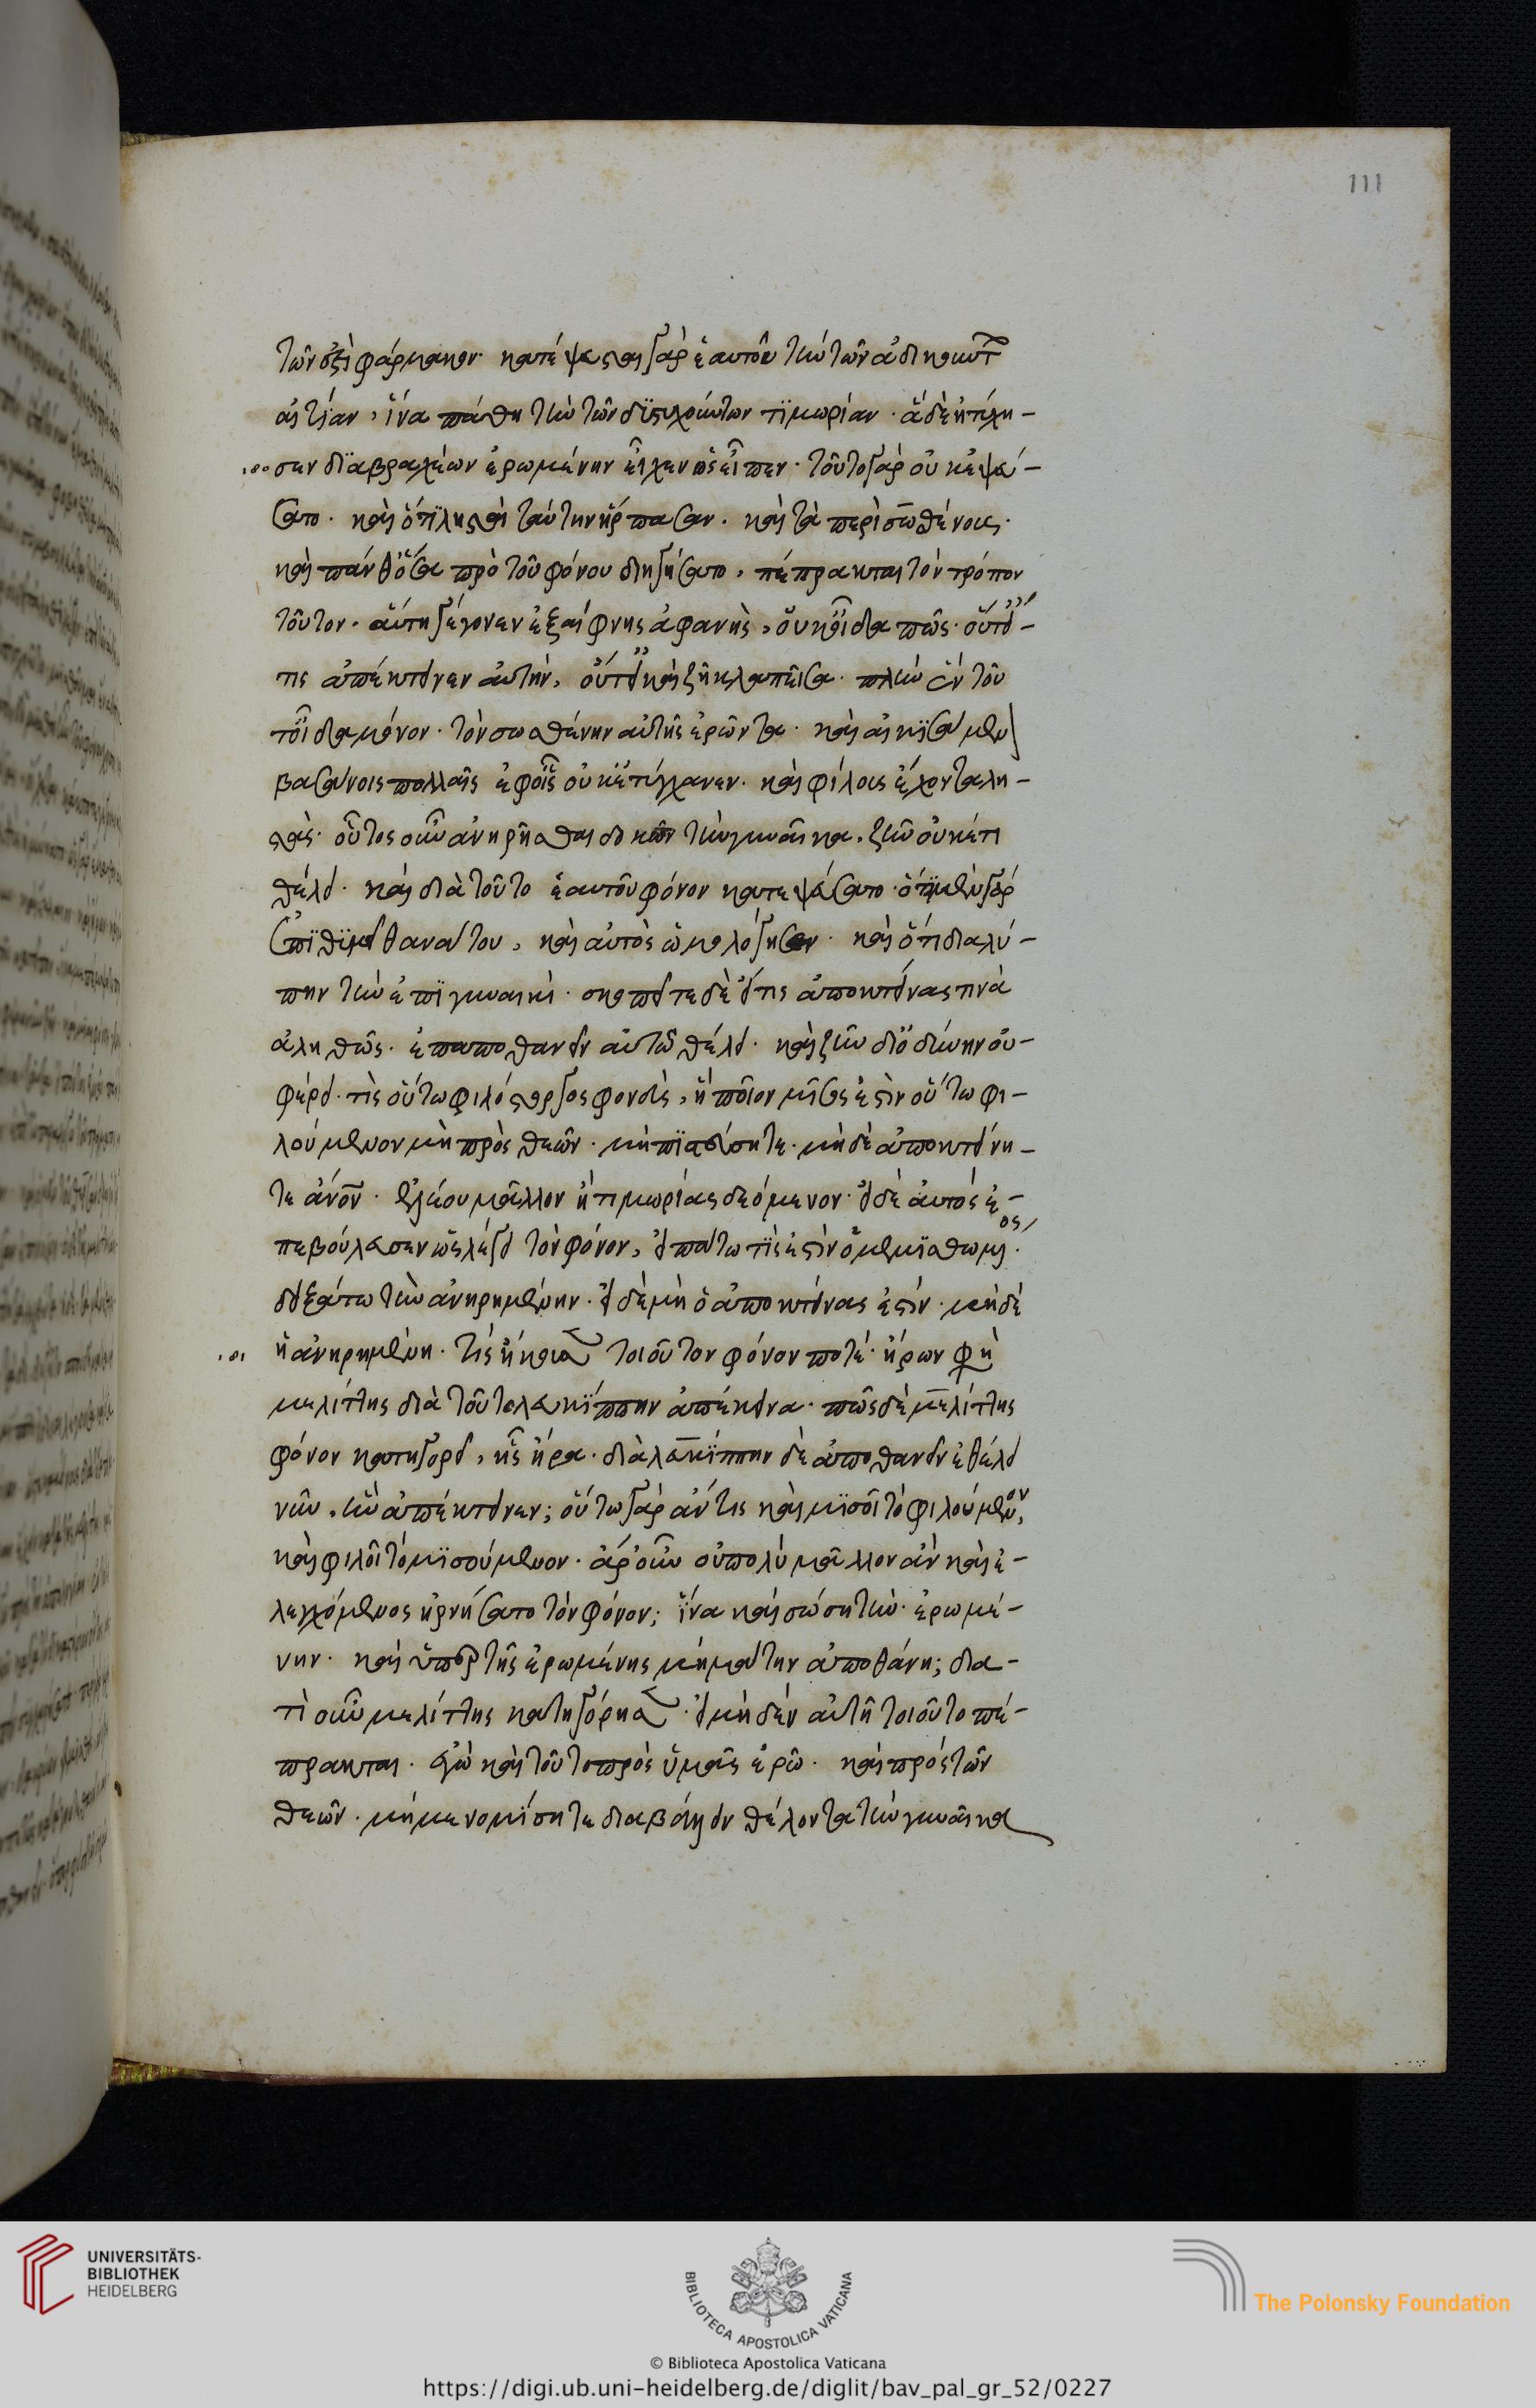 111
τῶν ὀξὺ φάρμακον· κατέψευσται γὰρ ἑαυτοῦ τὴν τῶν ἀδικούντ
αἰτίαν, ἵνα πάθη τὴν τῶν δυστυχούντων τιμωρίαν· ἃ δὲ ἠτύχη-
σεν διαβραχέων ἐρωμένην εἶχεν ὡς εἶπεν· τοῦτο γὰρ οὐκ ἐψεύ-
σατο· καὶ ὅτι λησταὶ ταύτην ἥρπασαν· καὶ τὰ περὶ σωσθένους·
καὶ πάνθ' ὅσα πρὸ τοῦ φόνου διηγήσατο, πέπρακται τὸν τρόπον
τοῦτον· αὕτη γέγονεν ἐξαίφνης ἀφανὴς, οὐκ οἶδα πῶς· οὔτ' εἴ-
τις ἀπέκτεινεν αὐτὴν, οὔτ' εἰ καὶ ζῆ κλαπεῖσα· πλὴν ἓν τοῦ
το οἶδα μόνον· τὸν σωσθένην αὐτῆς ἐρῶντα· καὶ αἰκισάμεν
βασάνοις πολλαῖς ἐφ' οἷς οὐκ ἐτύγχανεν· καὶ φίλους ἔχοντα λη-
στάς· οὗτος οὖν ἀνηρῆσθαι δοκῶν τὴν γυναῖκα, ζῆν οὐκέτι
θέλει· καὶ διὰ τοῦτο ἑαυτοῦ φόνον κατεψεύσατο· ὅτι μὲν γὰρ
ἐπιθυμεῖ θανάτου, καὶ αὐτὸς ὡμολόγησεν· καὶ ὅτι διαλύ-
πην τὴν ἐπὶ γυναικί· σκοπεῖτε δὲ εἴ τις ἀποκτείνας τινὰ
ἀληθῶς· ἐπαποθανεῖν αὐτῶ θέλει· καὶ ζῆν δι' ὀδύνην οὐ-
φέρει· τίς οὕτω φιλόστοργος φονεὺς, ἢ ποῖον μῖσος ἐστὶν οὕτω φι-
λούμενον μὴ πρὸς θεῶν· μὴ πιστεύσητε· μηδὲ ἀποκτείνη-
τε ἄνον· ἐλέου μᾶλλον ἢ τιμωρίας δεόμενον· εἰ δὲ αὐτὸς ἐ-
πεβούλευσεν ὡς λέγει τὸν φόνον, εἰπάτω τίς ἐστὶν ὁ μεμισθωμένος·
δειξάτω τὴν ἀνηρημένην· εἰ δὲ μὴ ὁ ἀποκτείνας ἐστίν· μηδὲ
ἡ ἀνηρημένη· τίς ἤκουσε τοιοῦτον φόνον ποτέ· ἤρων φησὶ
μελίττης διὰ τοῦτο λευκίππην ἀπέκτεινα· πῶς δὲ μελίττης
φόνον κατηγορεῖ, ἧς ἤρα· διὰ λευκίππην δὲ ἀποθανεῖν ἐθέλει
νῦν, ἣν ἀπέκτεινεν; οὕτω γὰρ ἄν τις καὶ μισοῖ τὸ φιλούμενον,
καὶ φιλοῖ τὸ μισούμενον· ἆρ' οὖν οὐ πολὺ μᾶλλον ἂν καὶ ἐ-
λεγχόμενος ἠρνήσατο τὸν φόνον; ἵνα καὶ σώση τὴν· ἐρωμέ-
νην· καὶ ὑπὲρ τῆς ἐρωμένης μὴ μάτην ἀποθάνη; δια-
τὶ οὖν μελίττης κατηγόρησε· εἰ μηδὲν αὐτῆ τοιοῦτο πέ-
πρακται· ἐγὼ καὶ τοῦτο πρὸς ὑμᾶς ἐρῶ· καὶ πρὸς τῶν
θεῶν· μή με νομίσητε διαβάλλειν θέλοντα τὴν γυναῖκα
UNIVERSITÄTS-
BIBLIOTHEK
HEIDELBERG
BIBLIOTECA APOSTOLICA VATICANA
© Biblioteca Apostolica Vaticana
The Polonsky Foundation
https://digi.ub.uni-heidelberg.de/diglit/bav_pal_gr_52/0227